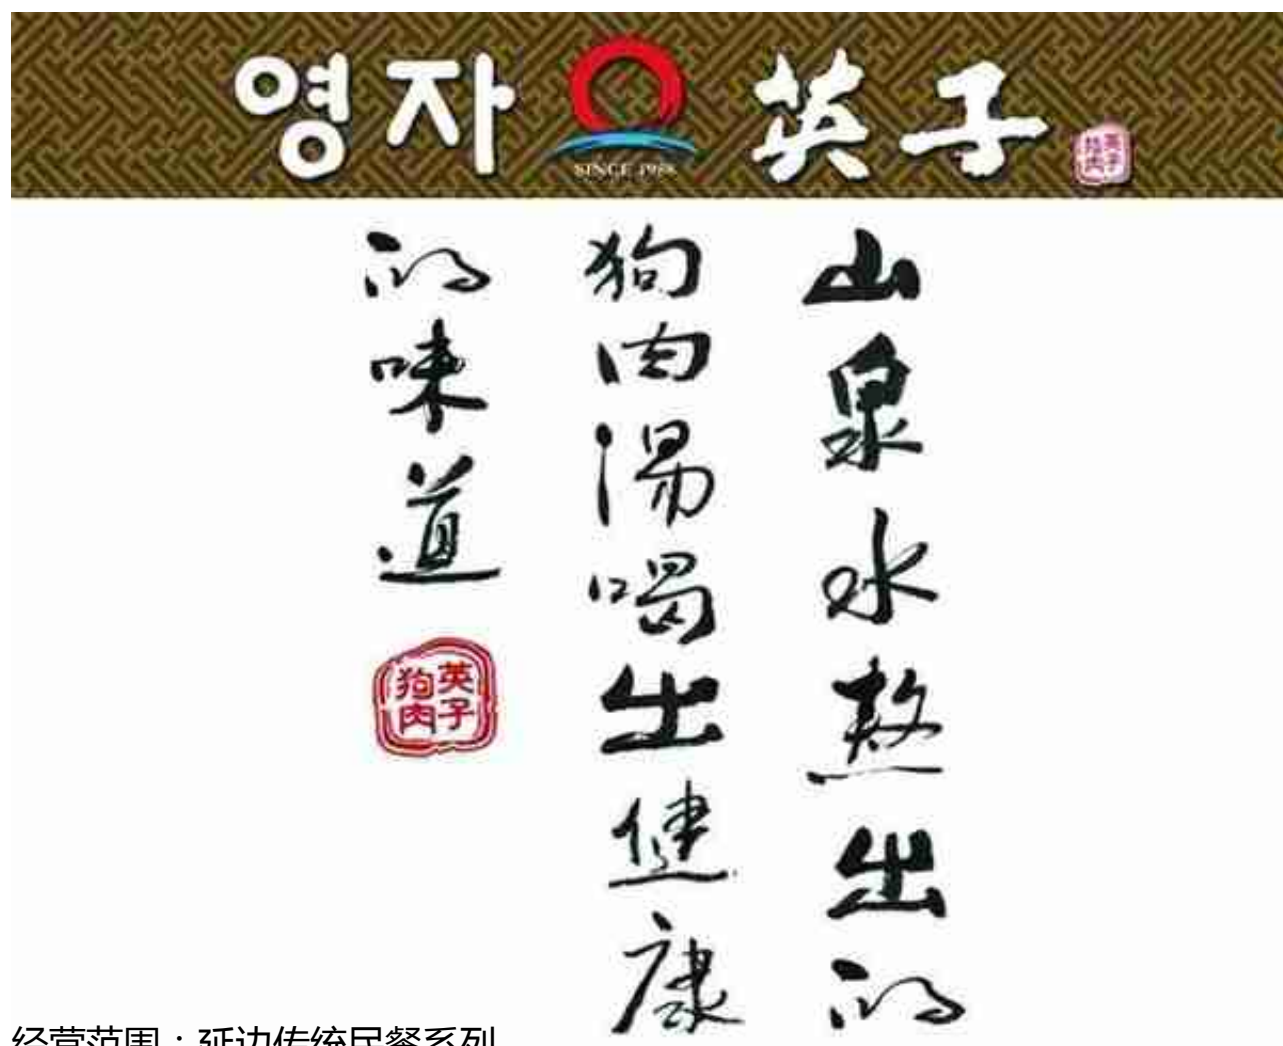 영자 英子
SINCE 1988
英子狗肉
山泉水熬出的
狗肉湯喝出健康
的味道
英子狗肉
经营范围：延边传统民餐系列